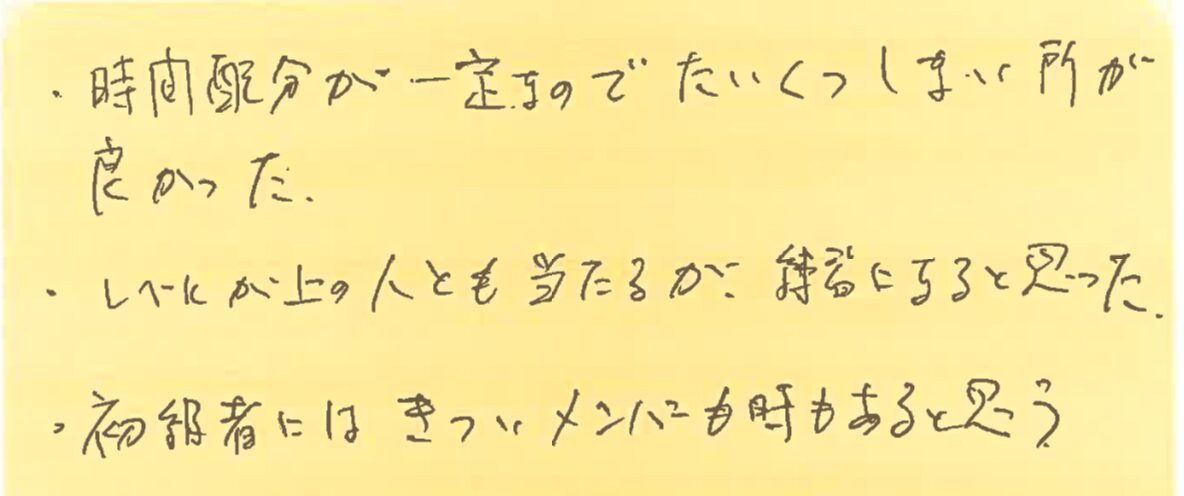 ・時間配分が一定なのでたいくつしない所が
良かった.
・レベルが上の人とも当たるが、練習になると思った.
・初級者にはきついメンバーも時もあると思う